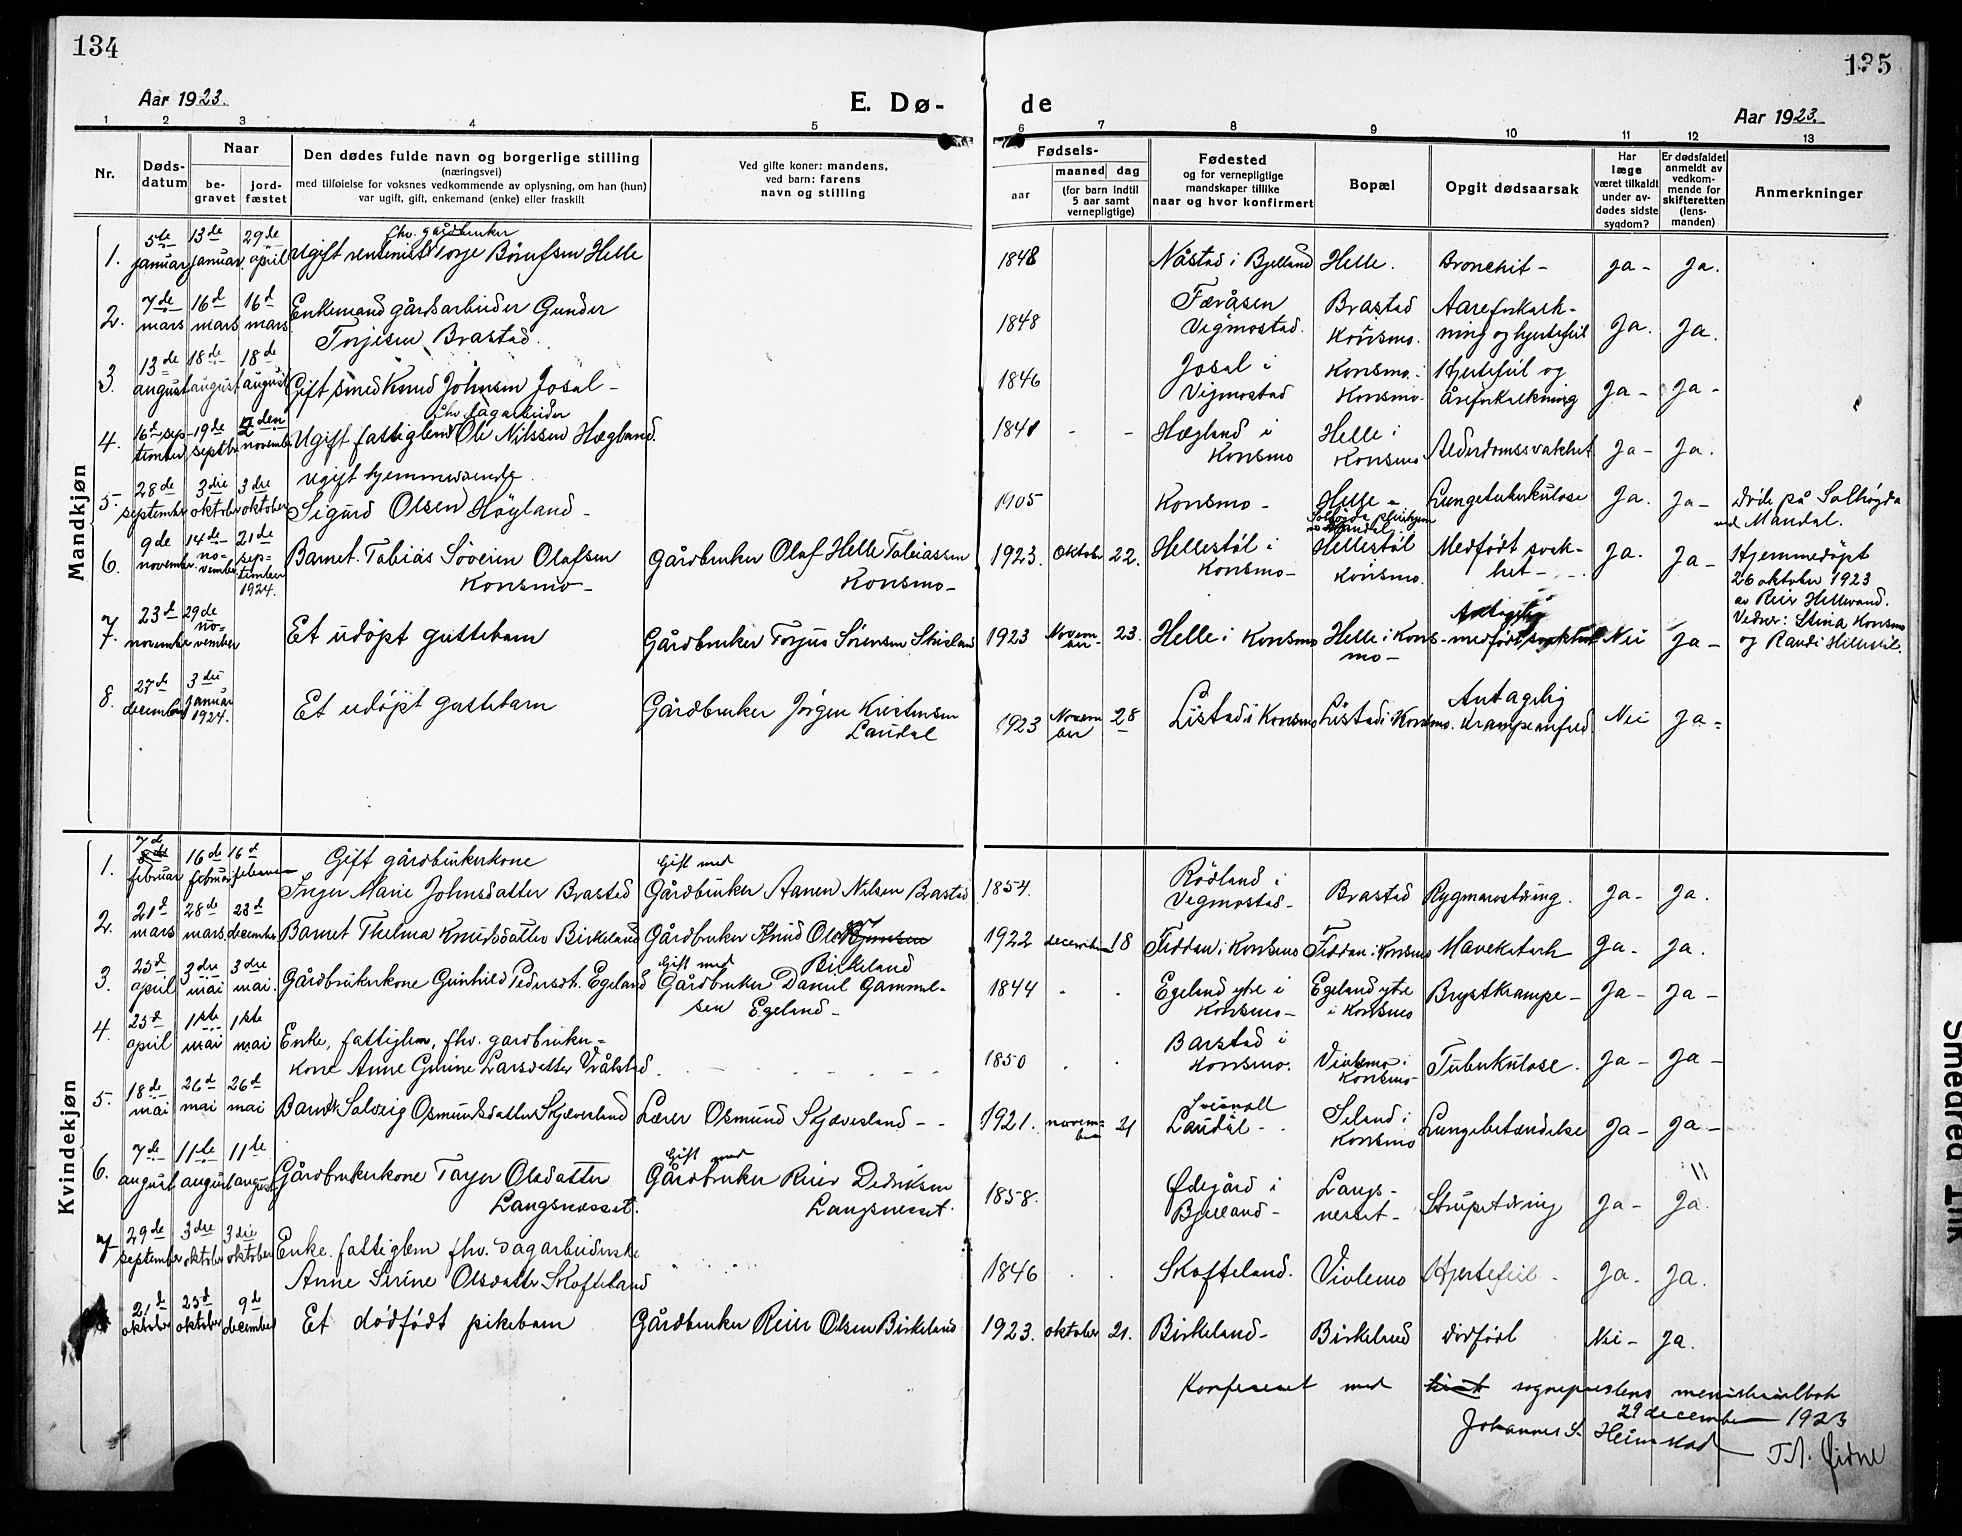 134
135
Aar 1923.
E. Dø-
de
Aar 1923.
1 2 3 4 5 6 7 8 9 10 11 12 13
Nr.
Døds-
datum
Naar
be-
gravet
jord-
fæstet
Den dødes fulde navn og borgerlige stilling
(næringsvei)
med tilføielse for voksnes vedkommende av oplysning, om han (hun)
var ugift, gift, enkemand (enke) eller fraskilt
Ved gifte koner: mandens,
ved barn: farens
navn og stilling
Fødsels-
aar
maaned
dag
(for barn indtil
5 aar samt
vernepligtige)
Fødested
og for vernepligtige
mandskaper tillike
naar og hvor konfirmert
Bopæl
Opgit dødsaarsak
Har
læge
været tilkaldt
under av-
dødes sidste
sygdom?
Er dødsfaldet
anmeldt av
vedkom-
mende for
skifteretten
(lens-
manden)
Anmerkninger
Mandkjøn
1. 5te januar 13de januar 29de april
fhv. gårdbruker
Ugift rentenist Torje Börufsen Helle
1848 Nåstad i Bjelland Helle. Bronchit - Ja - Ja.
2. 7de mars 16d mars 16d mars
Enkemand gårdsarbeider Gunder
Torjesen Brastad.
1848 Færåsen Vegmostad. Brastad Konsmo. Aareforkalk-
ning og hjertefeil Ja. Ja.
3. 13de august 18de august 18de august
Gift smed Knud Johnsen Josal -
1846 Josal i Vigmostad Konsmo i Konsmo. Hjertefeil og
åreforkalkning Ja - Ja -
4. 16d september 19de septbr 2den november
fhv. dagarbeider
Ugift fattiglem Ole Nilssen Hægland.
1841 - - Hægland i Konsmo Helle i Konsmo Alderdomssvakhet Ja - Ja.
5. 28de september 3die oktober 3die oktober
Ugift hjemmeværende.
Sigurd Olsen Höyland -
1905 Konsmo - Helle - Lungetuberkulose Ja. Ja -
Döde på Solhögda
ved Mandal.
6. 9de november 14de november 21de september 1924.
Barnet Tobias Söverin Olafsen
Konsmo -
Gårdbruker Olaf Helle Tobiassen
Konsmo -
1923. oktober 22. Hellestöl i Konsmo - Hellestöl Konsmo. Medfödt svak-
het - Ja. Ja -
Hjemmedöpt
26 oktober 1923
av Reier Hellevand.
Vedner: Stina Konsmo
og Randi Hillestöl.
7. 23d november 29de november
Et udöpt guttebarn
Gårdbruker Torjus Sörensen Skeieland
1923 November 23. Helle i Konsmo Helle i Kons-
mo - Antagelig
medfödt svakhet Nei Ja -
8. 27de december 3die januar 1924.
Et udöpt guttebarn
Gårdbruker Jörgen Kristensen
Laudal
1923 November 28 Listad i Konsmo Listad i Konsmo. Antagelig
krampeanfald Nei Ja -
Kvindekjøn
1. 7de februar 16de februar 16d februar
Gift gårdbrukerkone
Inger Marie Johnsdatter Brastad
Gift med
Gårdbruker Aanen Nilsen Brastad
1854. Rödland i Vegmostad - Brastad Rygmarvstæring. Ja - Ja.
2. 21d mars 28de mars 23d december
Barnet Thelma Knudsdatter Birkeland
Gårdbruker Knud Olsen
Birkeland
1922 december 18 Fiddan i Konsmo Fiddan i Konsmo Mavekatarh Ja - Ja.
3. 25d april 3die mai 3die mai.
Gårdbrukerkone Gunhild Pedersdt. Egeland
Gift med
Gårdbruker Daniel Gammel-
sen Egeland -
1844 - - Egeland ytre i Konsmo - Egeland ytre i Konsmo Brystkrampe - Ja - Ja -
4. 25d april 1ste mai 1ste mai
Enke, fattiglem, fhv. gardbruker-
kone Anne Gurine Larsdatter Vrålstad
1850 . . Barstad i Konsmo. Vivlemo i Konsmo - Tuberkulose. Ja - Ja -
5. 18de mai 26d mai 26d mai
Barnet Solveig Osmundsdatter Skjæveland
Lærer Osmund Skjæveland - -
1921. november 21 Sveinall Laudal - Seland i Konsmo Lungebetændelse Ja - Ja -
6. 7de august 11te august 11te august
Gårdbrukerkone Tayer Olsdatter
Langsnesset.
Gift med
Gårdbruker Reier Dedriksen
Langsnesset.
1858. Ödegård i Bjelland - Langs-
nesset - Strupetæring Ja - Ja.
7 29de september 3die oktober 3die oktober
Enke. fattiglem fhv. dagarbeiderske
Anne Serine Olsdatter Skofteland
1846 . . Skofteland. Vivlemo Hjertefeil - Ja - Ja.
21de oktober 25d oktober 9de december
Et dödfödt pikebarn
Gårdbruker Reier Olsen Birkeland
1923. oktober 21. Birkeland - Birkeland dödfödt Nei - Ja.
Konfereret med sogneprestens ministerialbok
29 december 1923
Johannes S. Heimstad T. A. Eidne
Smedrød Trk